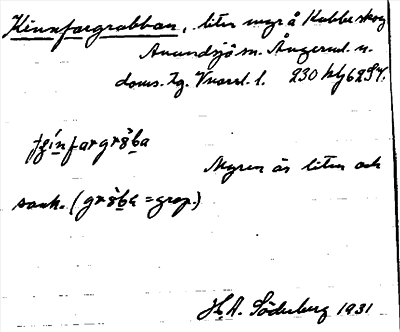 Kinnfargrabban, liten myr å Kubbe skog
Anundsjö sn. Ångerml. n.
doms. Tg. Vnorrl. l. 230 kly 6234.
grȧ̊ba
Myren är liten och
sank. (grȧ̊ba = grop.)
H. A. Söderberg 1931